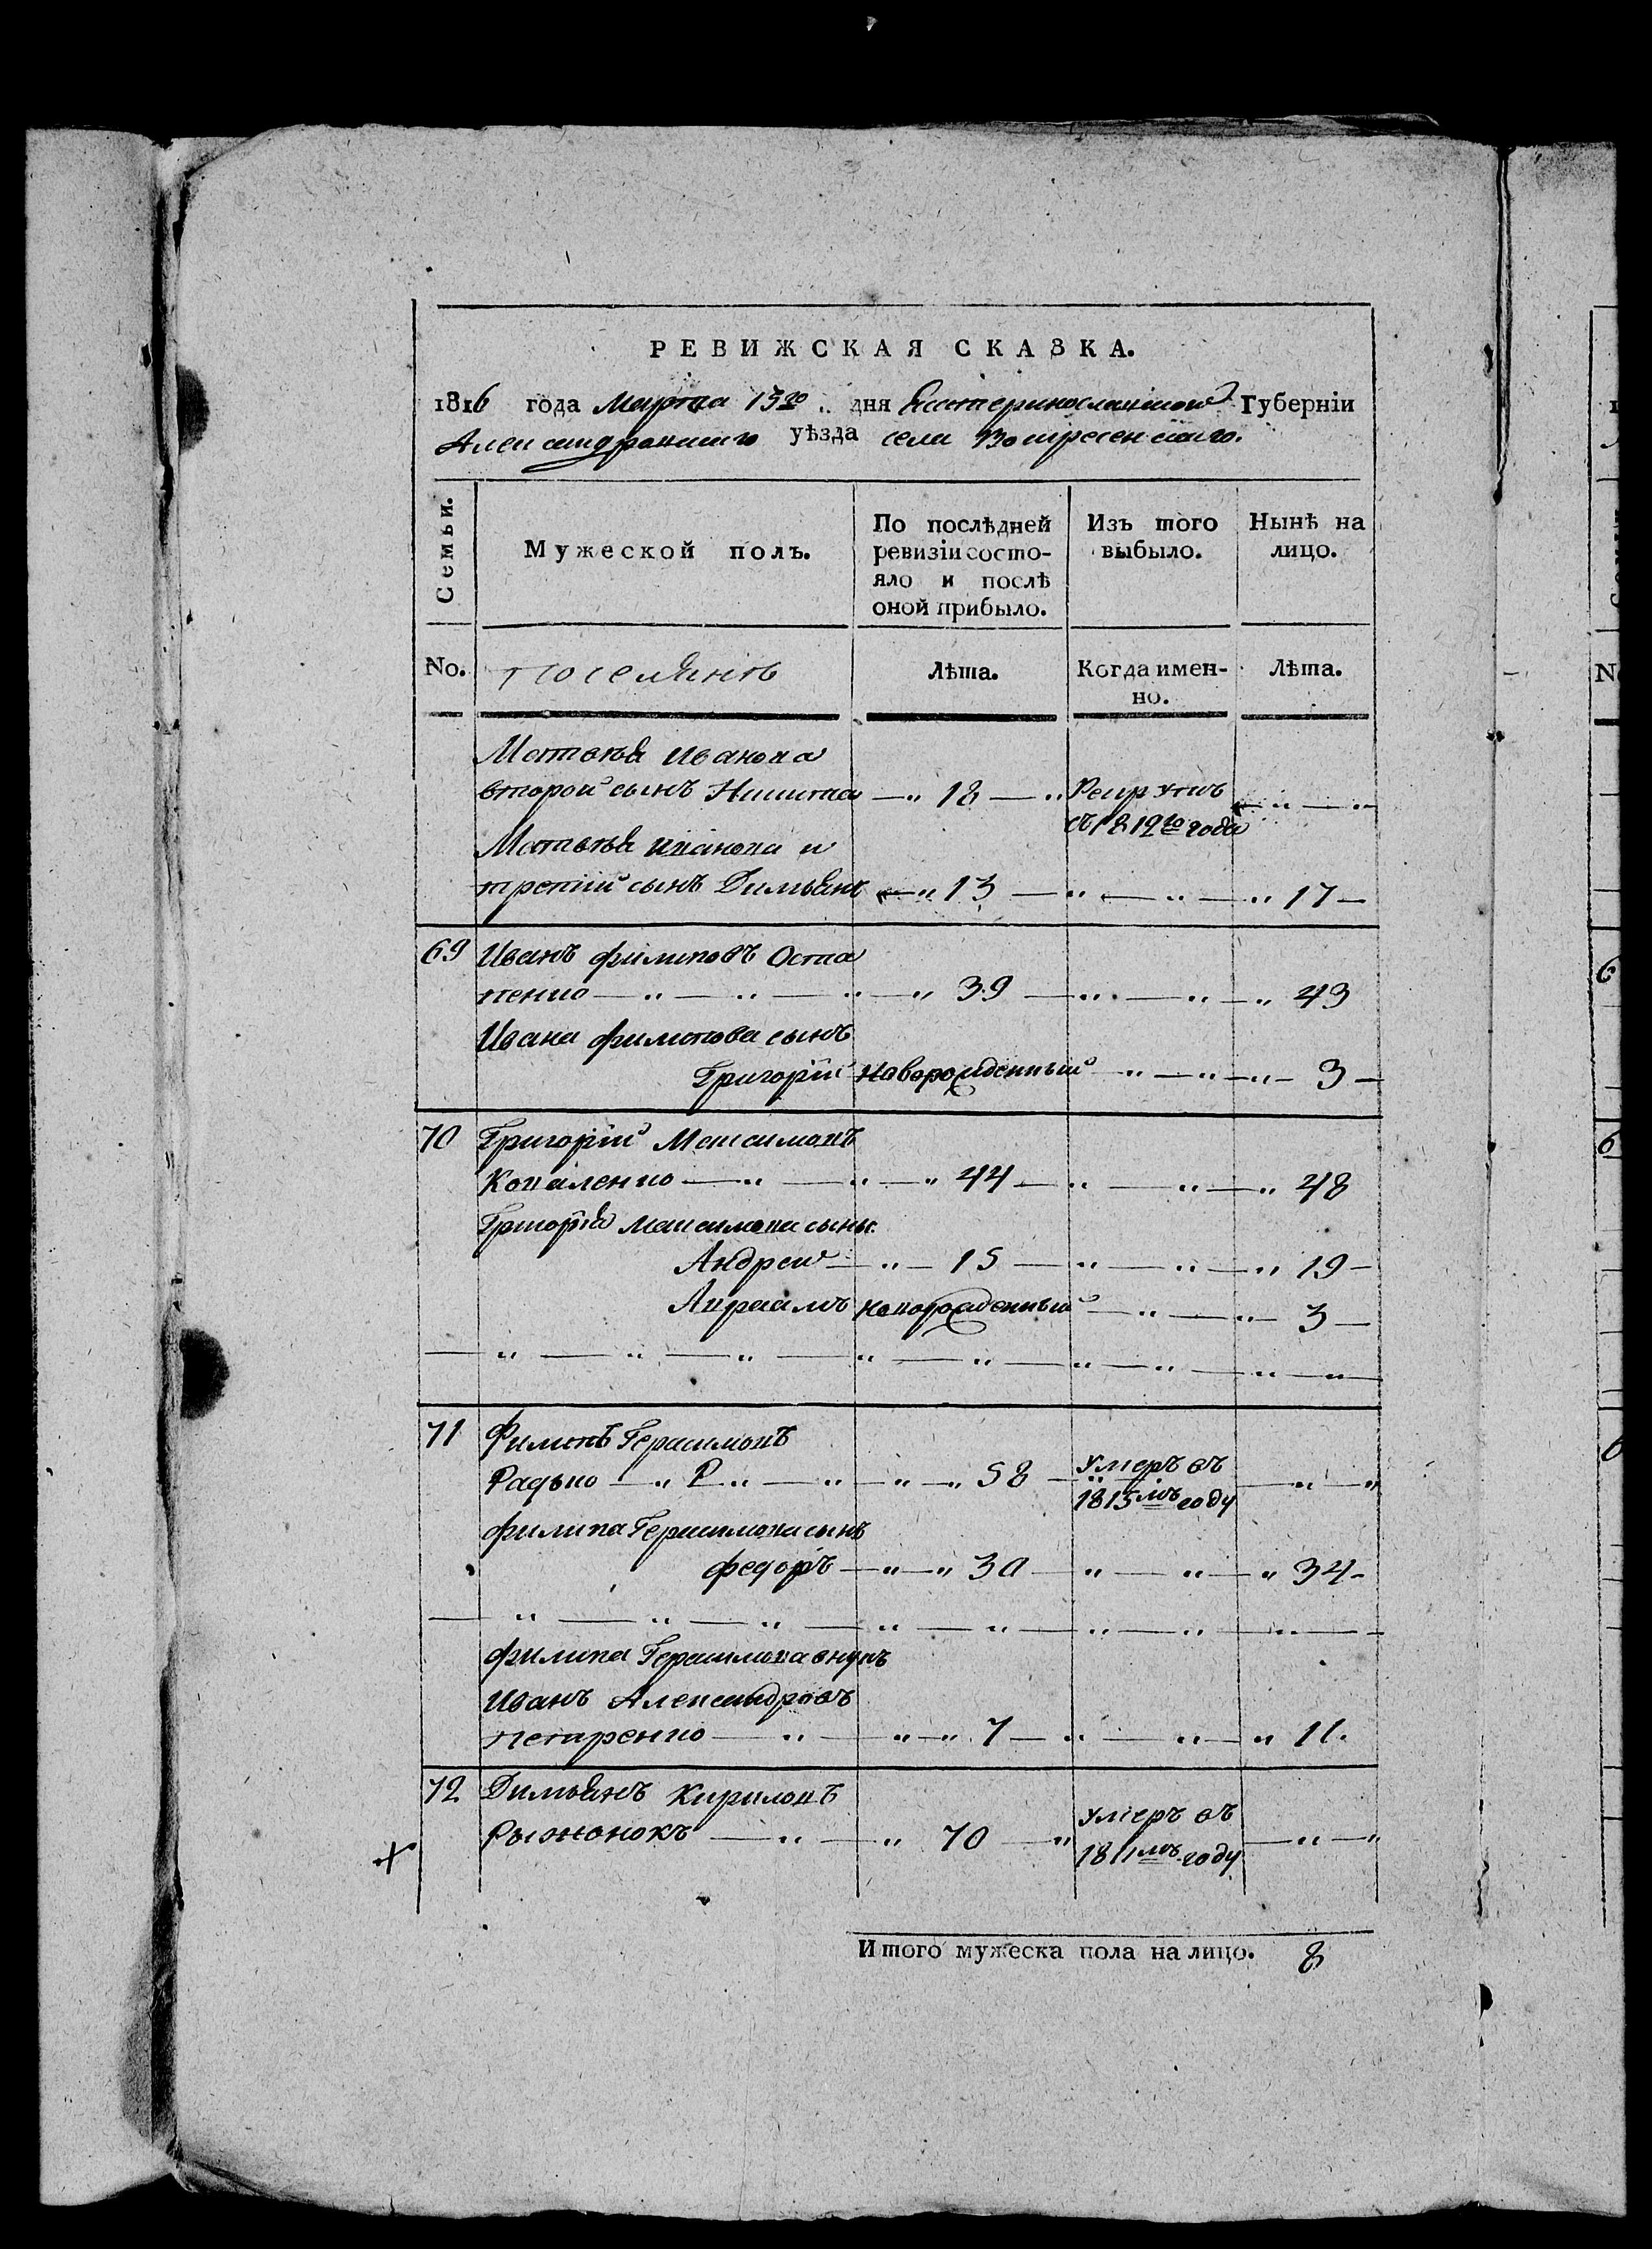 РЕВИЖСКАЯ СКАЗКА.
1816 года Марта 15го дня Екатеринославской Губерніи
Александровскаго уѣзда села Воскресенскаго.
Семьи.
Мужеской полъ.
По послѣдней
ревизіи состо-
яло и послѣ
оной прибыло.
Изъ того
выбыло.
Нынѣ на
лицо.
No. Поселянъ Лѣта. Когда имен- Лѣта.
но.
Матвѣя Иванова
второй сынъ Никита 18 Рекрутъ
съ 1812го года
Матвѣя Иванова и
третій сынъ Димьянъ 13 17
69 Иванъ Филиповъ Оста
пенко 39 43
Ивана Филипова сынъ
Григорій новорожденный 3
70 Григорій Максимовъ
Коваленко 44 48
Григорія Максимова сыны
Андрей 15 19
Авраамъ новорожденный 3
71 Филипъ Герасимовъ
Радько Р 58 Умеръ въ
1815мъ году
Филипа Герасимова сынъ
Федоръ 30 34
Филипа Герасимова внукъ
Иванъ Александровъ
7 11.
72 Димьянъ Кириловъ
Рыжонокъ 70 Умеръ въ
1811мъ году
Итого мужеска пола на лицо. 8